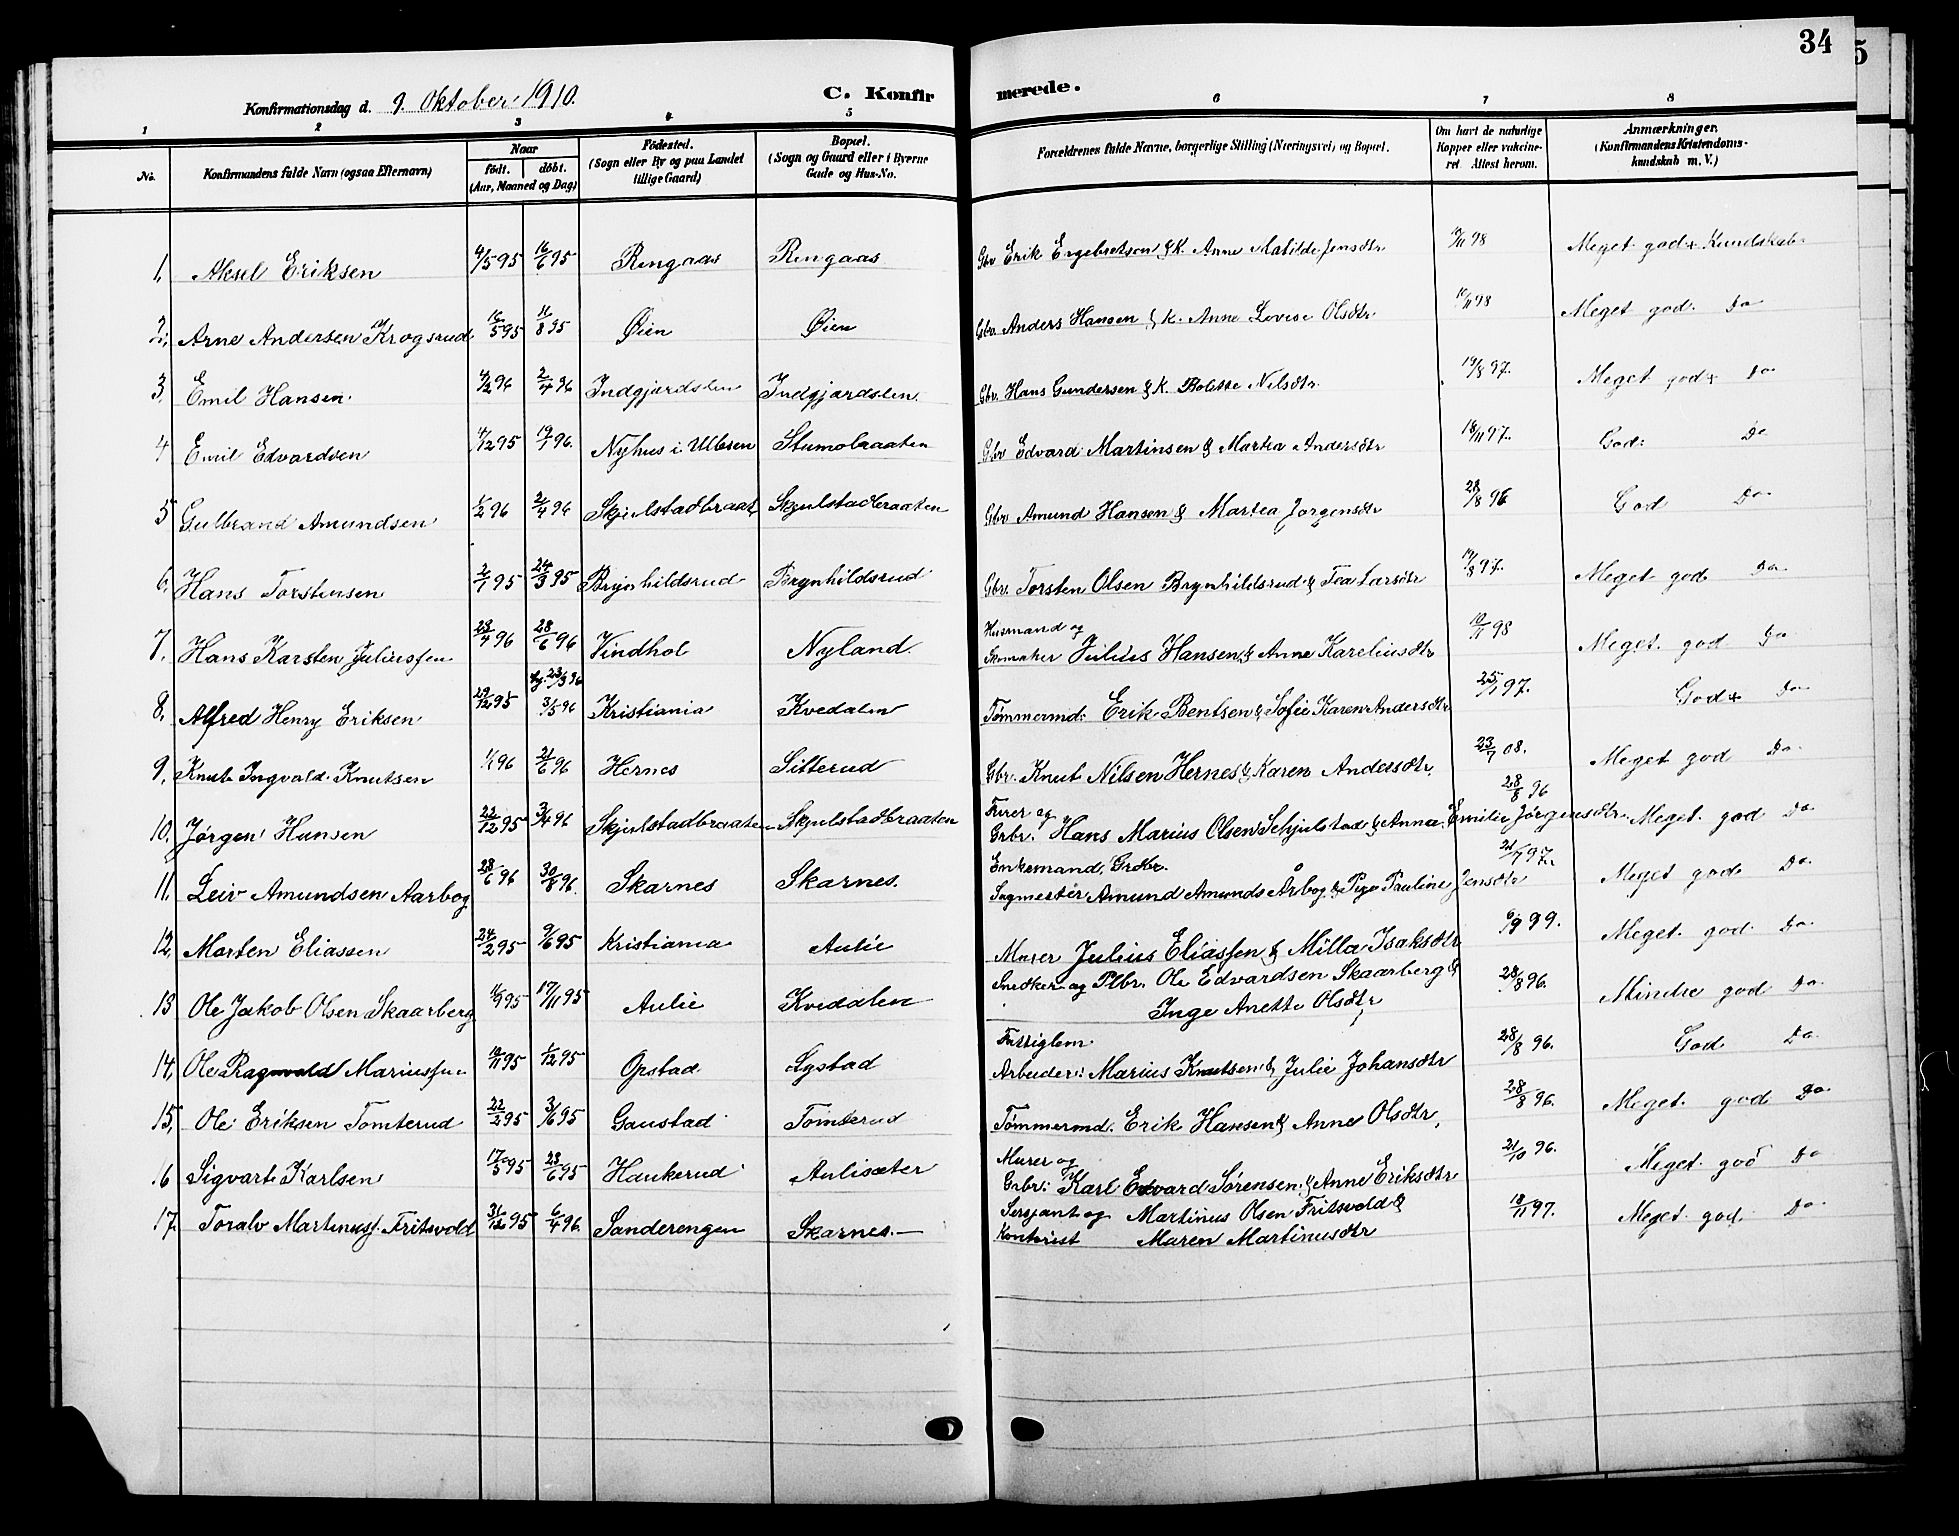 34
5
Konfirmationsdag d. 9. Oktober 1910. C. Konfir merede.
1 2 3 4 5 6 7 8
No. Konfirmandens fulde Navn (ogsaa Efternavn) Naar født. døbt. (Aar, Maaned og Dag) Fødested. (Sogn eller By og paa Landet tillige Gaard) Bopæl. (Sogn og Gaard eller i Byerne Gade og Hus-No. Forældrenes fulde Navne, borgerlige Stilling (Næringsvei) og Bopæl. Om havt de naturlige Kopper eller vaccineret Attest herom. Anmærkninger. (Konfirmandens Kristendomskundskab m. V.)
1, Aksel Eriksen 4/5 95 16/6 95 Rengaas Rengaas Gbr Erik Engebretsen & K. Anne Matilde Jensdtr 98 Meget god Kundskab
2, Arne Andersen Krogsrud 16/5 95 11/8 95 Øien Øien Gbr. Anders Hansen & K. Anne Lovise Olsdtr 98 Meget god. Do
3, Emil Hansen. 4/2 96 2/4 96 Indgjærdslen Indgjærdslen. Gbr. Hans Gundersen & K. Bolette Nilsdtr. 19/8 97. Meget god Do
4 Emil Edvardsen 95 19/1 96. Nyhus i Ullsen Gbr Edvard Martinsen & Martea Andersdtr 18/11 97. God: Do
5 Gulbrand Amundsen 1/2 96 2/4 96 Skjulstadbraat. Skjulstadbraaten Gbr Amund Hansen & Martea Jørgensdtr 28/8 96 God Do
6, Hans Torstensen 2/1 95 24/3 95 Brynhildsrud Brynhildsrud Gbr. Torsten Olsen Brynhildsrud & Tea Larsdtr 19/8 97. Meget god Do
7, Hans Karsten Juliussen 23/4 96 28/6 96 Vindhol Nyland. Husmand og Skomaker Julius Hansen & Anne Kareliusdtr 98 Meget god Do
8, Alfred Henry Eriksen 29/12 95 23/3 96 3/5 96 Kristiania Kvedalen Tømmermd: Erik Bentsen & Sofie Karen Andersdtr 25/1 97. God Do
9, Knut Ingvald Knutsen 1/1 96 21/6 96 Hernes Sitterud Gbr. Knut Nilsen Hernes & Karen Andersdtr. 23/7 08. Meget god Do
10, Jørgen Hansen 22/12 95 3/4 96 Skjulstadbraaten Skjulstadbraaten Furer og Grbr. Hans Marius Olsen Schjulstad & Anna Emilie Jørgensdtr. 28/8 96 Meget god Do
11, Leiv Amundsen Aarbog 28/6 96 30/8 96. Skarnes Skarnes. Enkemand, Grdbr. Sagmester Amund Amunds Årbog & Pauline Jensdtr 97. Meget god Do
12, Morten Eliassen 24/2 95 9/6 95 Kristiania Aulie Murer Julius Eliassen & Milla Isaksdtr 99. Meget god. Do
13 Ole Jakob Olsen Skaarberg 95 17/11 95 Aulie Kvedalen Snedker og Plbr. Ole Edvardsen Skaarberg & Inge Anette Olsdtr 28/8 96. Mindre god Do
14, Ole Ragnvald Mariussen 95 1/12 95 Opstad Systad Fattiglem. Arbeider: Marius Knutsen & Julie Johansdtr 28/8 96. God Do
15, Ole Eriksen Tomterud 22/2 95 3/6 95 Gaustad Tomterud Tømmermd. Erik Hansen & Anne Olsdtr, 28/8 96. Meget god Do
16 Sigvart Karlsen 17/5 95 23/6 95 Haukerud Aulisæter Murer og Grbr: Karl Edvard Sørensen & Anne Eriksdtr 21/10 96. Meget god Do
17. Toralv Martinuss. Fritsvold 31/12 95 6/4 96. Sanderengen Skarnes.— Sersjant og Kontorist Martinus Olsen Fritsvold & Maren Martinusdtr 18/11 97. Meget god Do